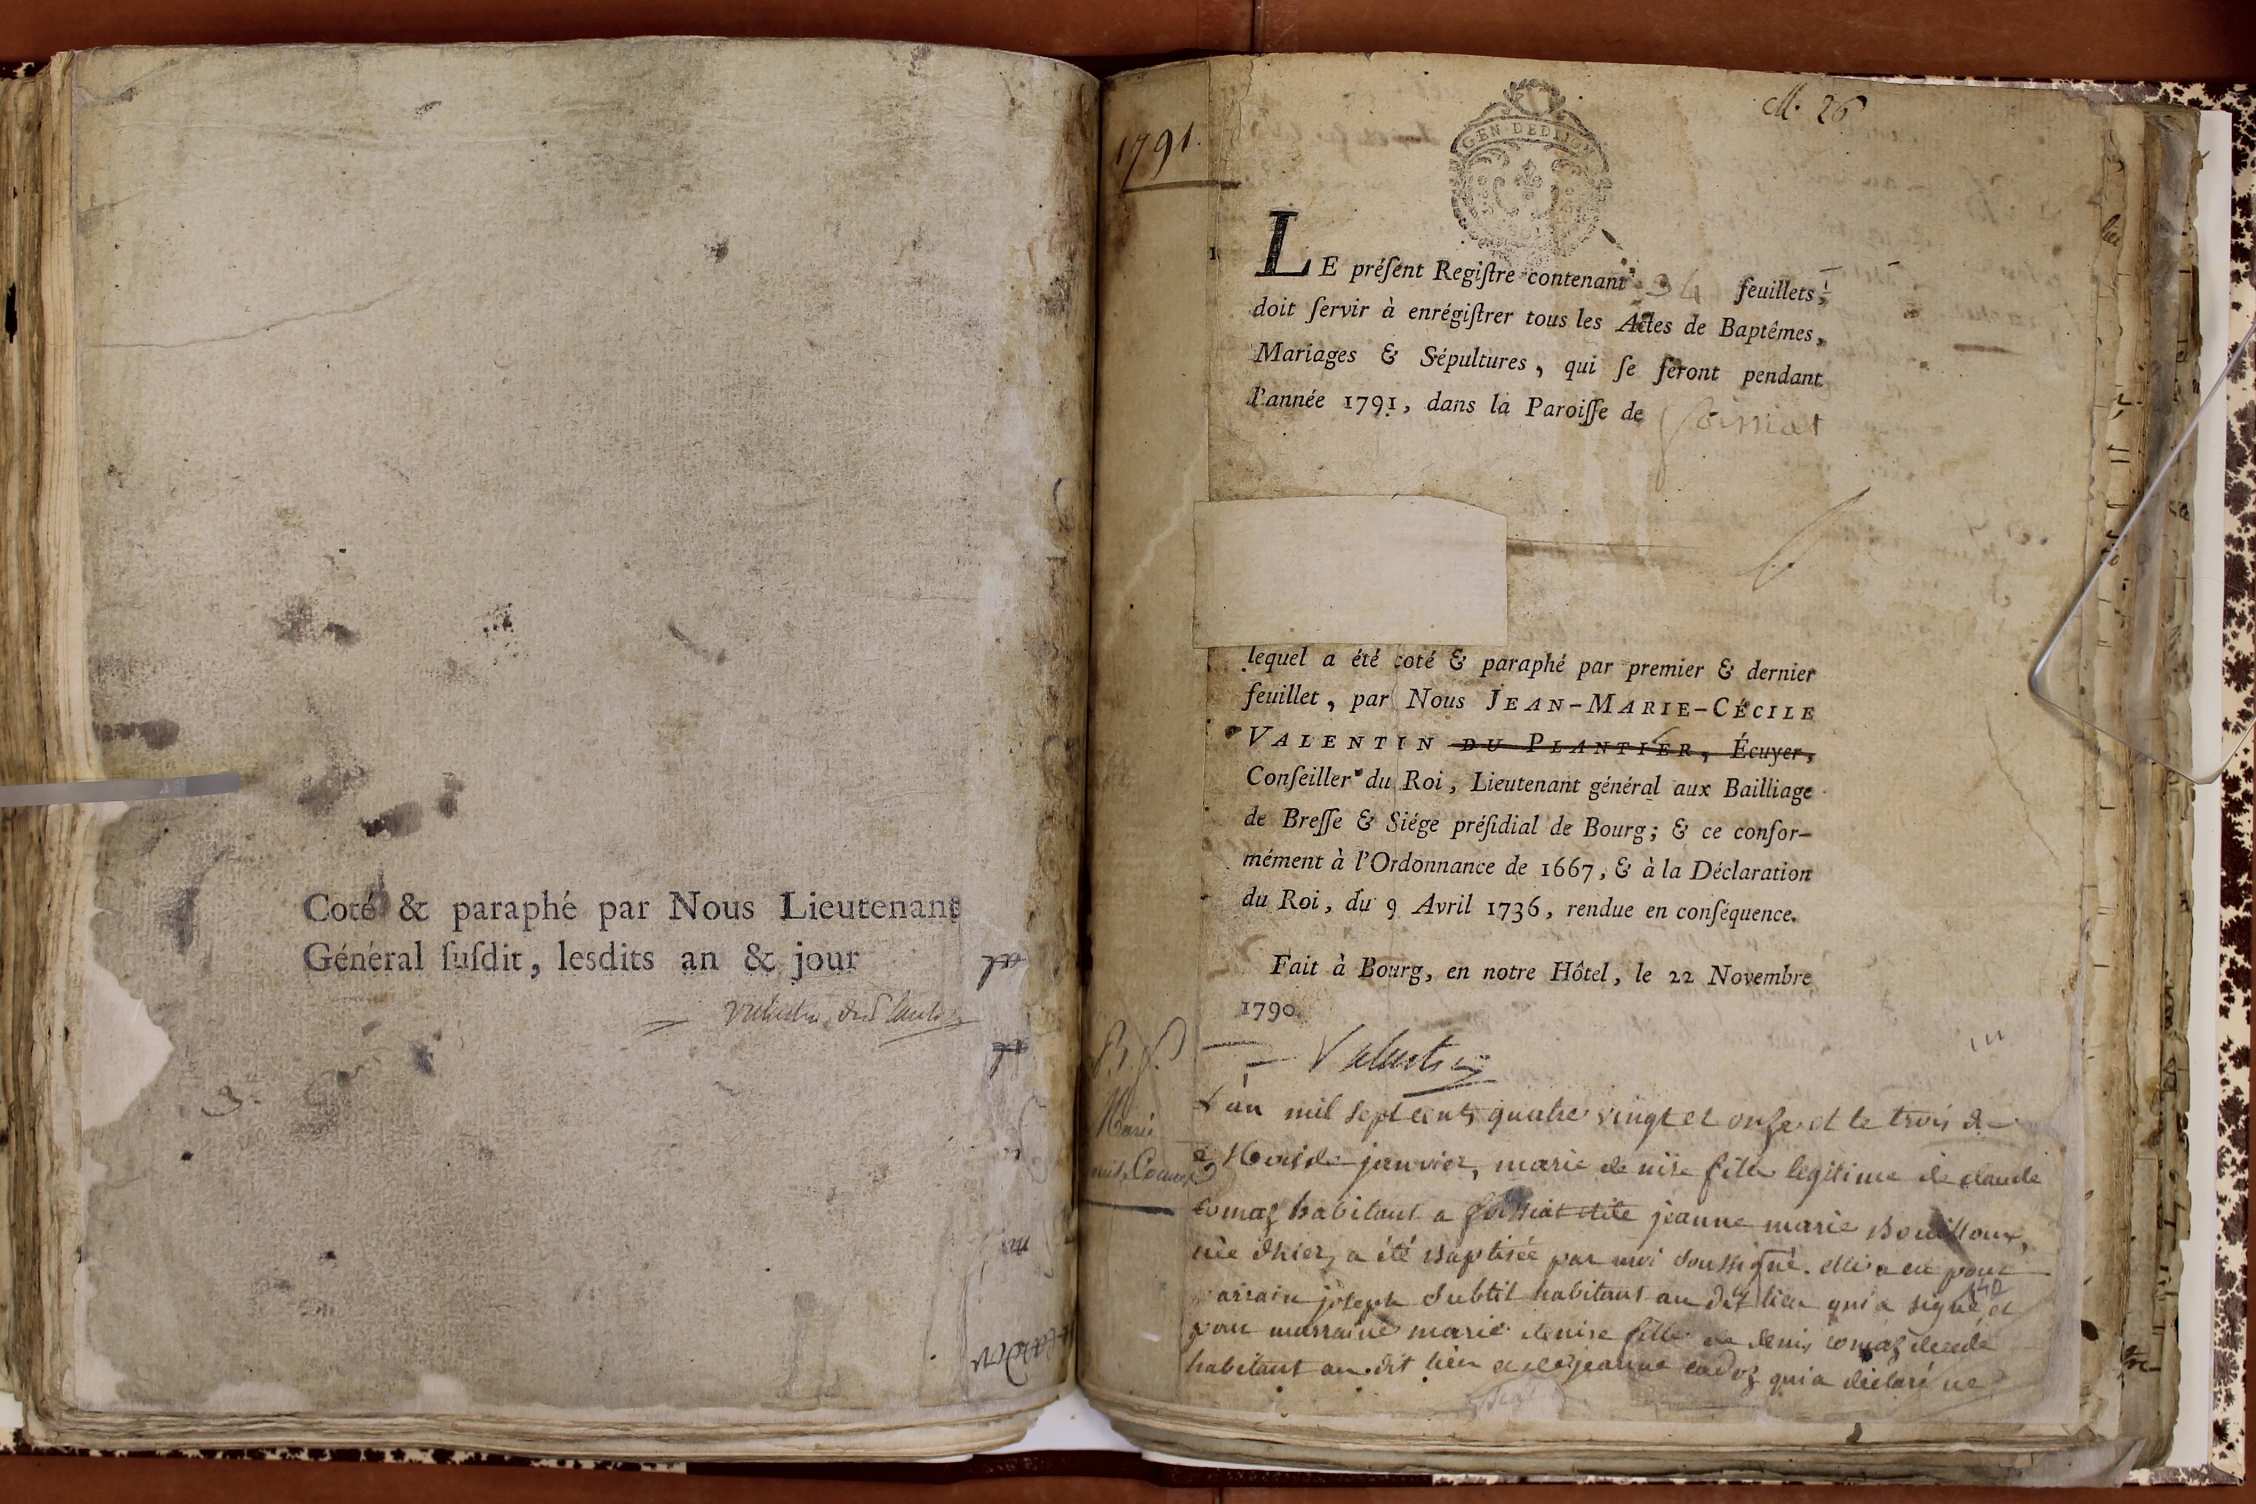 Coté & paraphé par Nous Lieutenant
Général ſuſdit, lesdits an & jour
1791.
M. 26
GEN DEDI
LE préſent Regiſtre contenant 34 feuillets,
doit ſervir à enrégiſtrer tous les Actes de Baptêmes,
Mariages & Sépultures, qui ſe feront pendant
l'année 1791, dans la Paroiſſe de foissiat
lequel a été coté & paraphé par premier & dernier
feuillet, par Nous JEAN-MARIE-CÉCILE
VALENTIN DU PLANTIER, Écuyer,
Conſeiller du Roi, Lieutenant général aux Bailliage
de Breſſe & Siége préſidial de Bourg; & ce confor-
mément à l'Ordonnance de 1667, & à la Déclaration
du Roi, du 9 Avril 1736, rendue en conſéquence.
Fait à Bourg, en notre Hôtel, le 22 Novembre
1790.
Valentin
B. f.
Marie
L'an mil sept cents quatre vingt et onze et le trois de
Mois de janvier, marie denise fille legitime de claude
comaz habitant a foissiat et de jeanne marie Bouilloux,
née d'hier, a été Baptisée par moi soussigné. elle a eu pour
parrain joseph Subtil habitant au dit lieu qui a signé et
pour marraine marie denise fille de denis comaz
habitant au dit lieu et de jeanne cadoz qui a déclaré ne
140